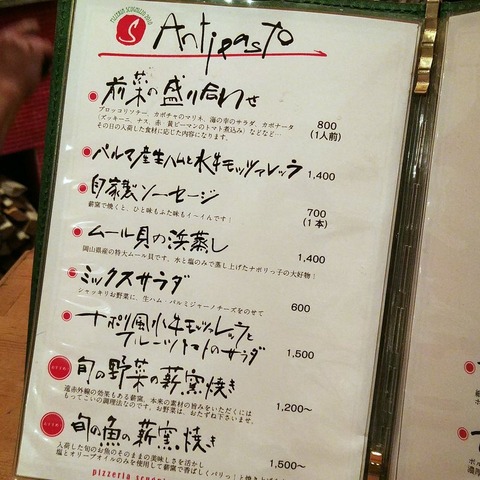 PIZZERIA SCUGNIZZO
S
Antipasto
前菜の盛り合わせ
ブロッコリソテー、カボチャのマリネ、海の幸のサラダ、カポナータ
(ズッキーニ、ナス、赤・黄ピーマンのトマト煮込み)などなど…
その日の入荷した食材に応じた内容になります。
800
(1人前)
パルマ産生ハムと水牛モッツァレッラ
1,400
自家製ソーセージ
薪窯で焼くと、ひと味もふた味もイ〜イんです!
700
(1本)
ムール貝の浜蒸し
岡山県産の特大ムール貝です、水と塩のみで蒸し上げたナポリっ子の大好物!
1,400
ミックスサラダ
シャッキリお野菜に、生ハム・パルミジャーノチーズをのせて
600
ナポリ風水牛モッツァレッラと
フルーツトマトのサラダ
1,500
旬の野菜の薪窯焼き
遠赤外線の効果もある薪窯、本来の素材の旨みをいただくには
もってこいの調理法なんです。お野菜は、おたずね下さいませ。
1,200〜
旬の魚の薪窯焼き
入荷した旬のお魚をそのままの美味しさを活かし
塩とオリーブオイルのみを使用して薪窯で香ばしくパリっ!と焼き
1,500〜